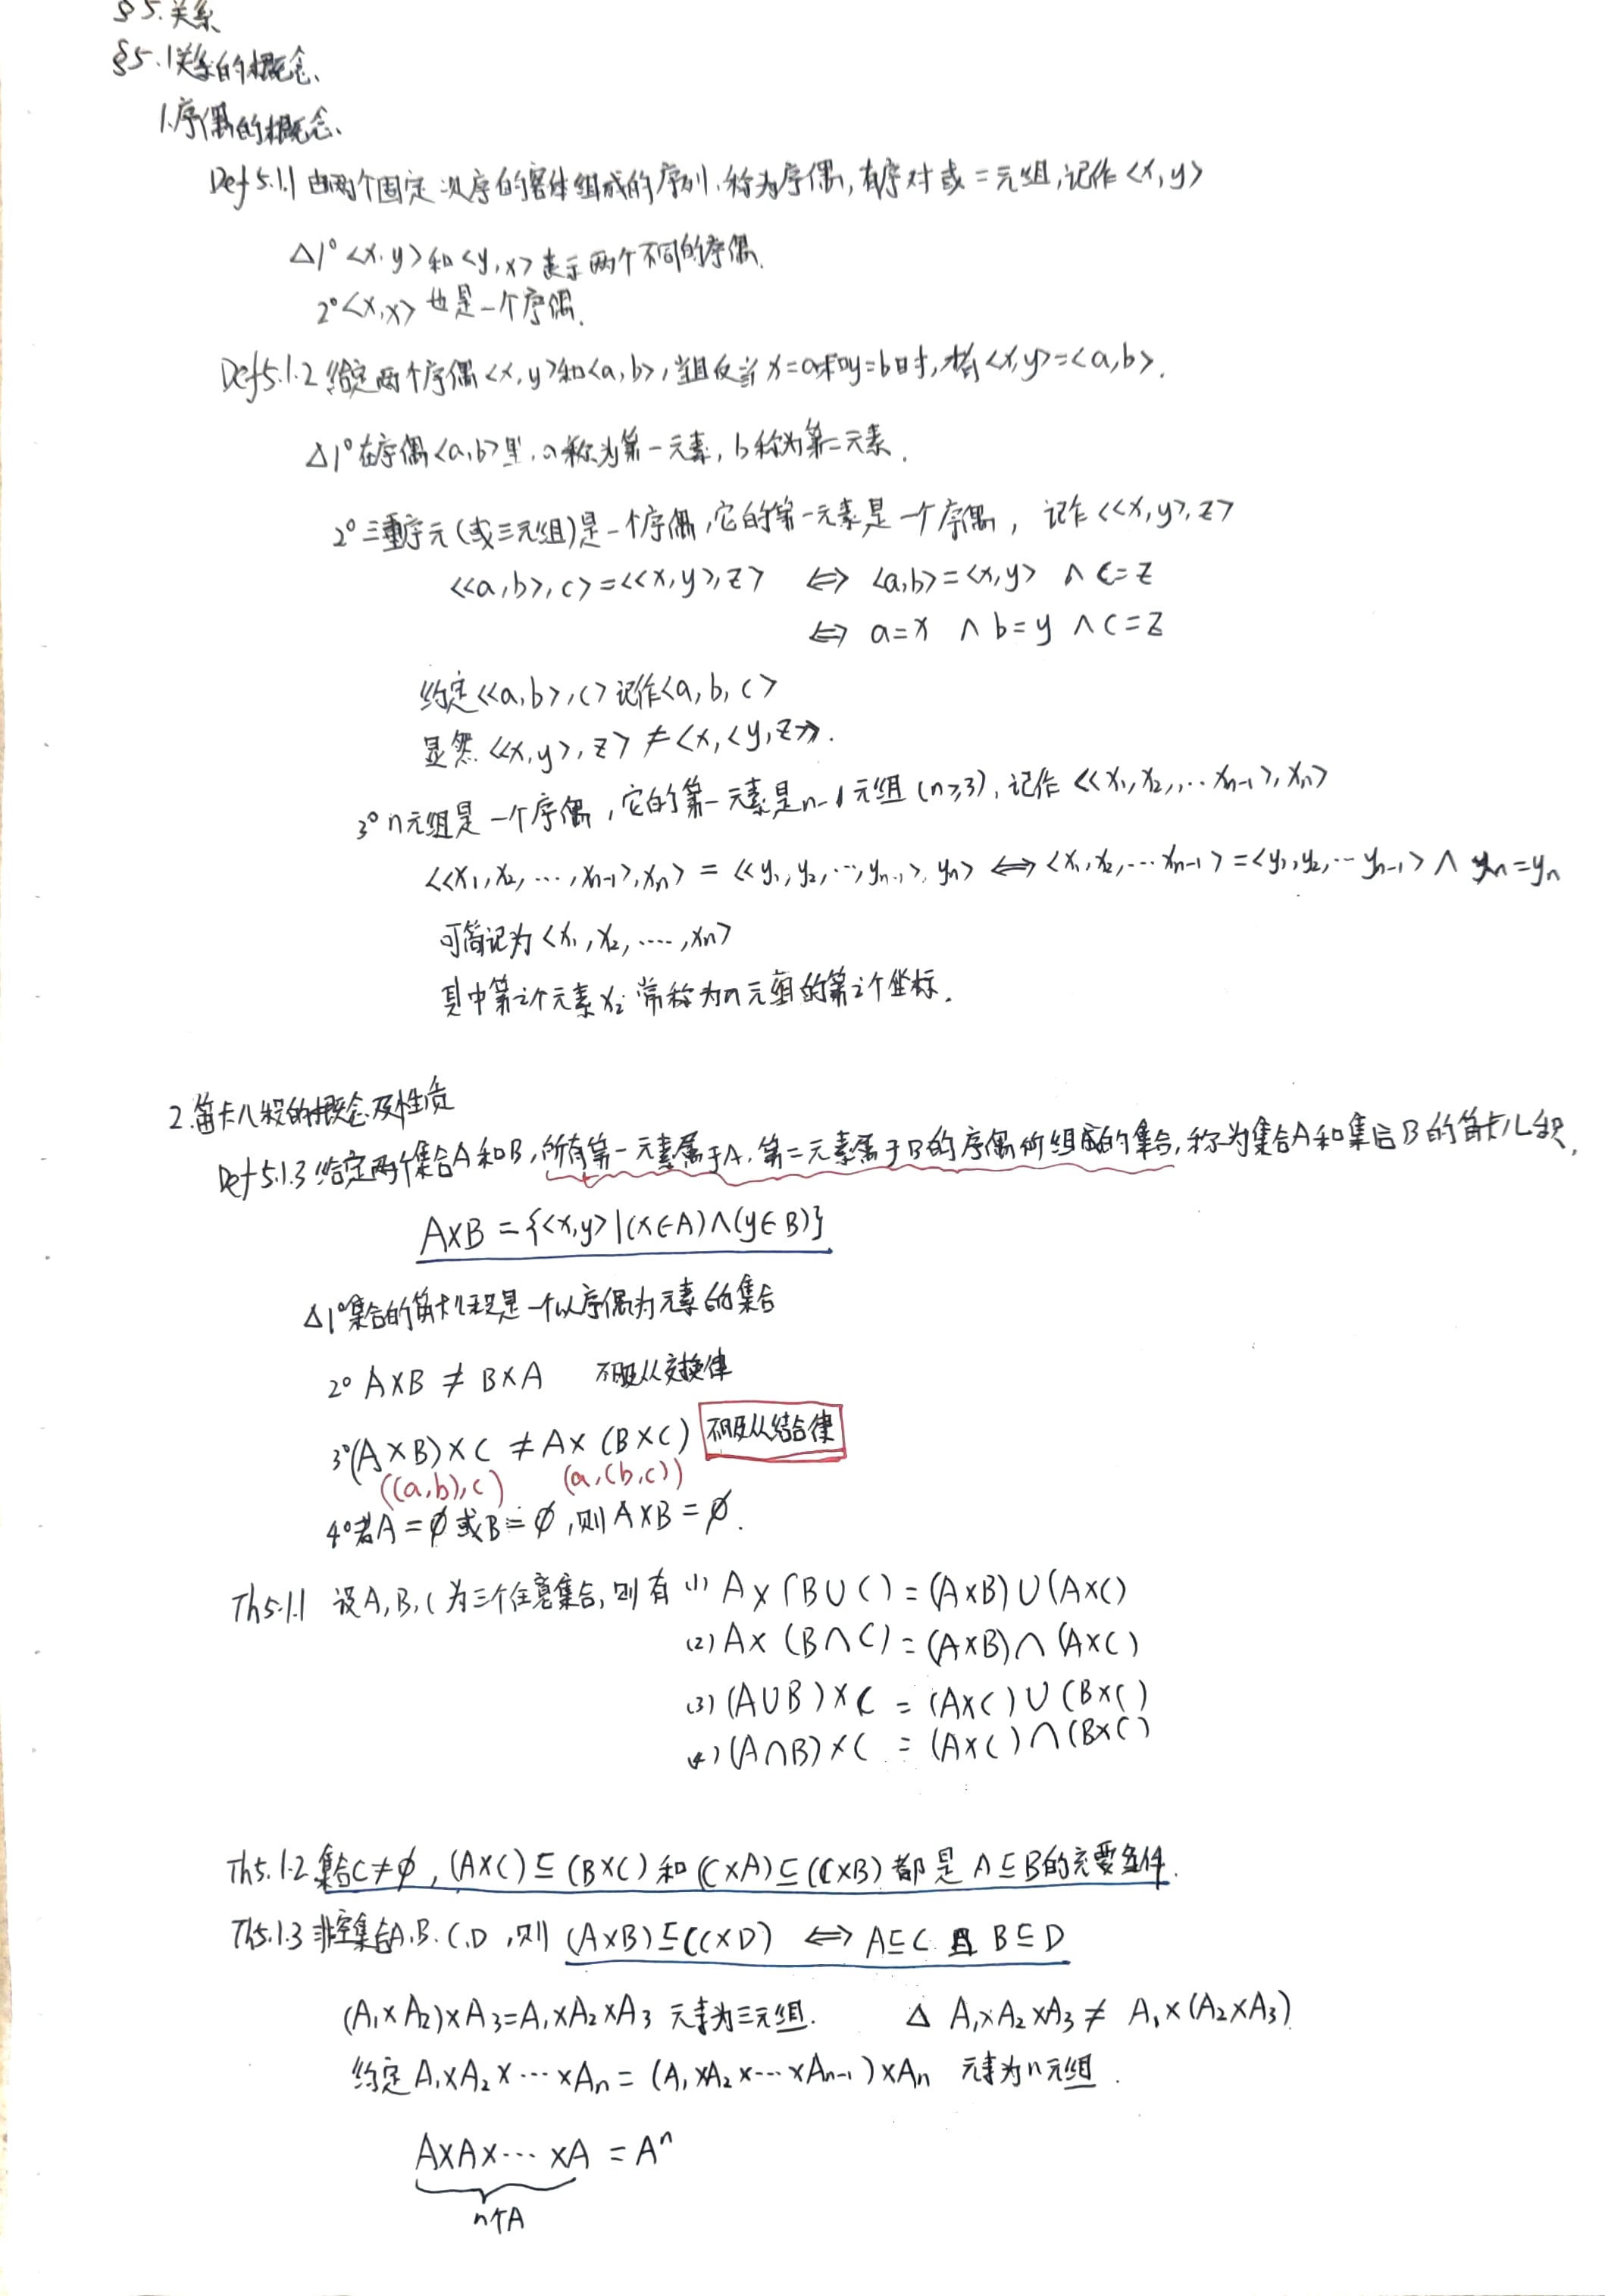 §5.关系
§5.1关系的概念、
1.序偶的概念、
Def 5.1.1 由两个固定次序的客体组成的序列,称为序偶,有序对或二元组,记作<x,y>
△1°<x,y>和<y,x>表示两个不同的序偶.
2°<x,x>也是一个序偶.
Def5.1.2 给定两个序偶<x,y>和<a,b>,当且仅当x=a和y=b时,才有<x,y>=<a,b>.
△1°在序偶<a,b>里,a称为第一元素,b称为第二元素.
2°三重序元(或三元组)是一个序偶,它的第一元素是一个序偶, 记作<<x,y>,z>
<<a,b>,c>=<<x,y>,z> ⇔ <a,b>=<x,y> ∧ c=z
⇔ a=x ∧ b=y ∧ c=z
约定<<a,b>,c>记作<a,b,c>
显然<<x,y>,z>≠<x,<y,z>>.
3° n元组是一个序偶,它的第一元素是n-1元组(n≥3),记作<<x₁,x₂,…xₙ₋₁>,xₙ>
<<x₁,x₂,…,xₙ₋₁>,xₙ> = <<y₁,y₂,…,yₙ₋₁>,yₙ> ⇔ <x₁,x₂,…xₙ₋₁>=<y₁,y₂,…yₙ₋₁> ∧ xₙ=yₙ
可简记为<x₁,x₂,……,xₙ>
其中第i个元素xᵢ常称为n元组的第i个坐标.
2.笛卡儿积的概念及性质
Def5.1.3 给定两个集合A和B,所有第一元素属于A,第二元素属于B的序偶所组成的集合,称为集合A和集合B的笛卡儿积.
A×B={<x,y>|(x∈A)∧(y∈B)}
△1°集合的笛卡儿积是一个以序偶为元素的集合
2° A×B ≠ B×A 不服从交换律
3°(A×B)×C ≠ A×(B×C) 不服从结合律
((a,b),c) (a,(b,c))
4°若A=∅或B=∅,则A×B=∅.
Th5.1.1 设A,B,C为三个任意集合,则有 (1) A×(B∪C)=(A×B)∪(A×C)
(2) A×(B∩C)=(A×B)∩(A×C)
(3) (A∪B)×C = (A×C)∪(B×C)
(4) (A∩B)×C = (A×C)∩(B×C)
Th5.1.2 集合C≠∅,(A×C)⊆(B×C)和(C×A)⊆(C×B)都是A⊆B的充要条件.
Th5.1.3 非空集合A,B,C,D,则 (A×B)⊆(C×D) ⇔ A⊆C 且 B⊆D
(A₁×A₂)×A₃=A₁×A₂×A₃ 元素为三元组. △ A₁×A₂×A₃ ≠ A₁×(A₂×A₃)
约定A₁×A₂×…×Aₙ=(A₁×A₂×…×Aₙ₋₁)×Aₙ 元素为n元组.
A×A×…×A=Aⁿ
n个A